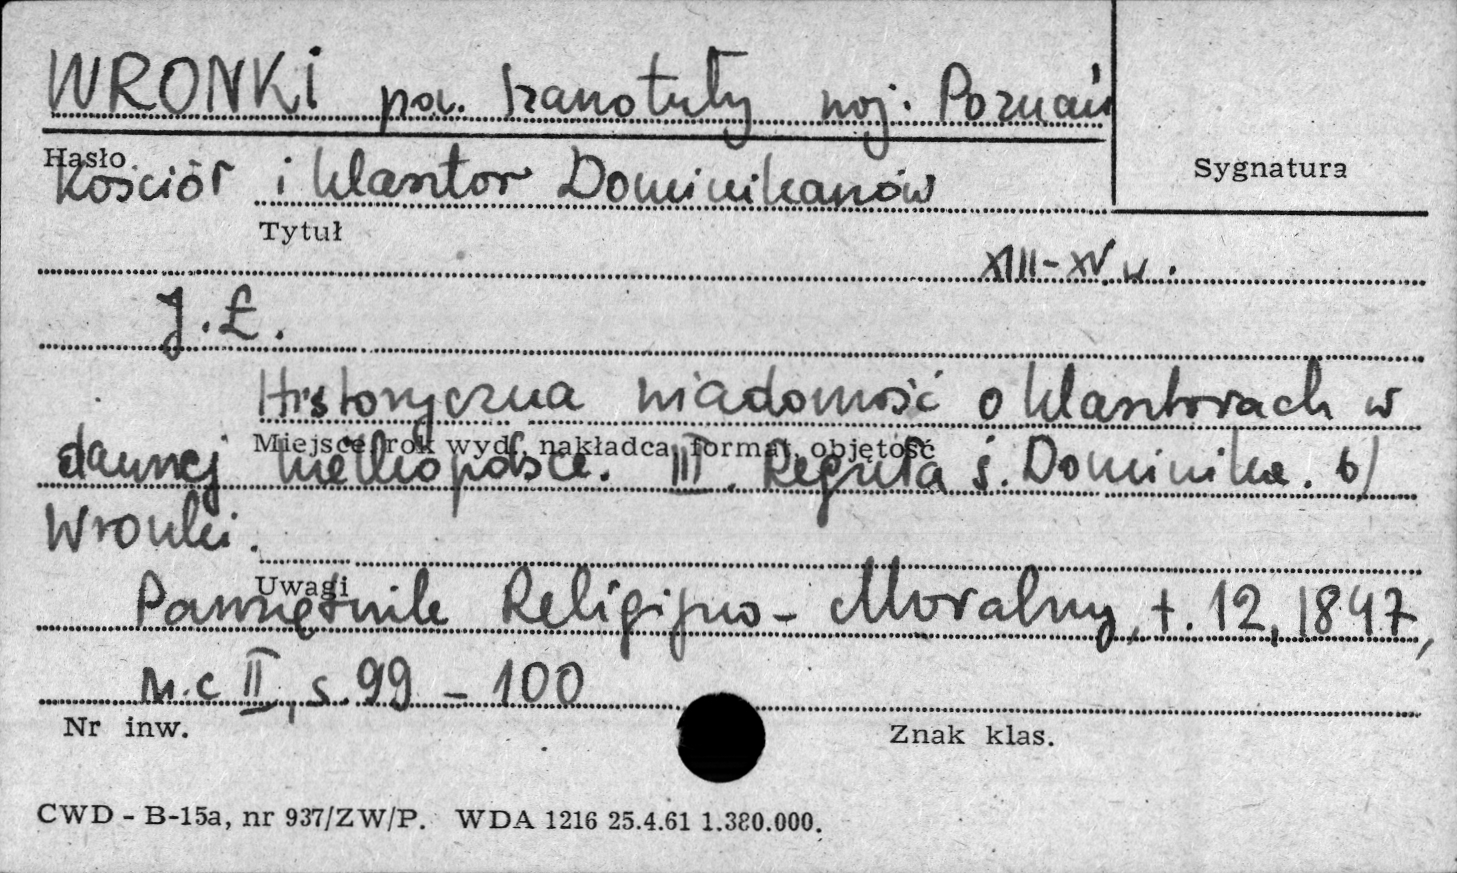 WRONKI pow. Szamotuły woj. Poznań
Hasło
Sygnatura
Kościół i klasztor Dominikanów
Tytuł
XIII-XV w.
J. Ł.
Historyczna wiadomość o klasztorach w
Miejsce, rok wyd., nakładca, format, objętość
dawnej Wielkopolsce. III. Reguła ś. Dominika. b)
Wronki.
Uwagi
Pamiętnik Religijno-Moralny, t. 12, 1847,
s. 99 - 100
Nr inw.
Znak klas.
CWD - B-15a, nr 937/ZW/P. WDA 1216 25.4.61 1.380.000.